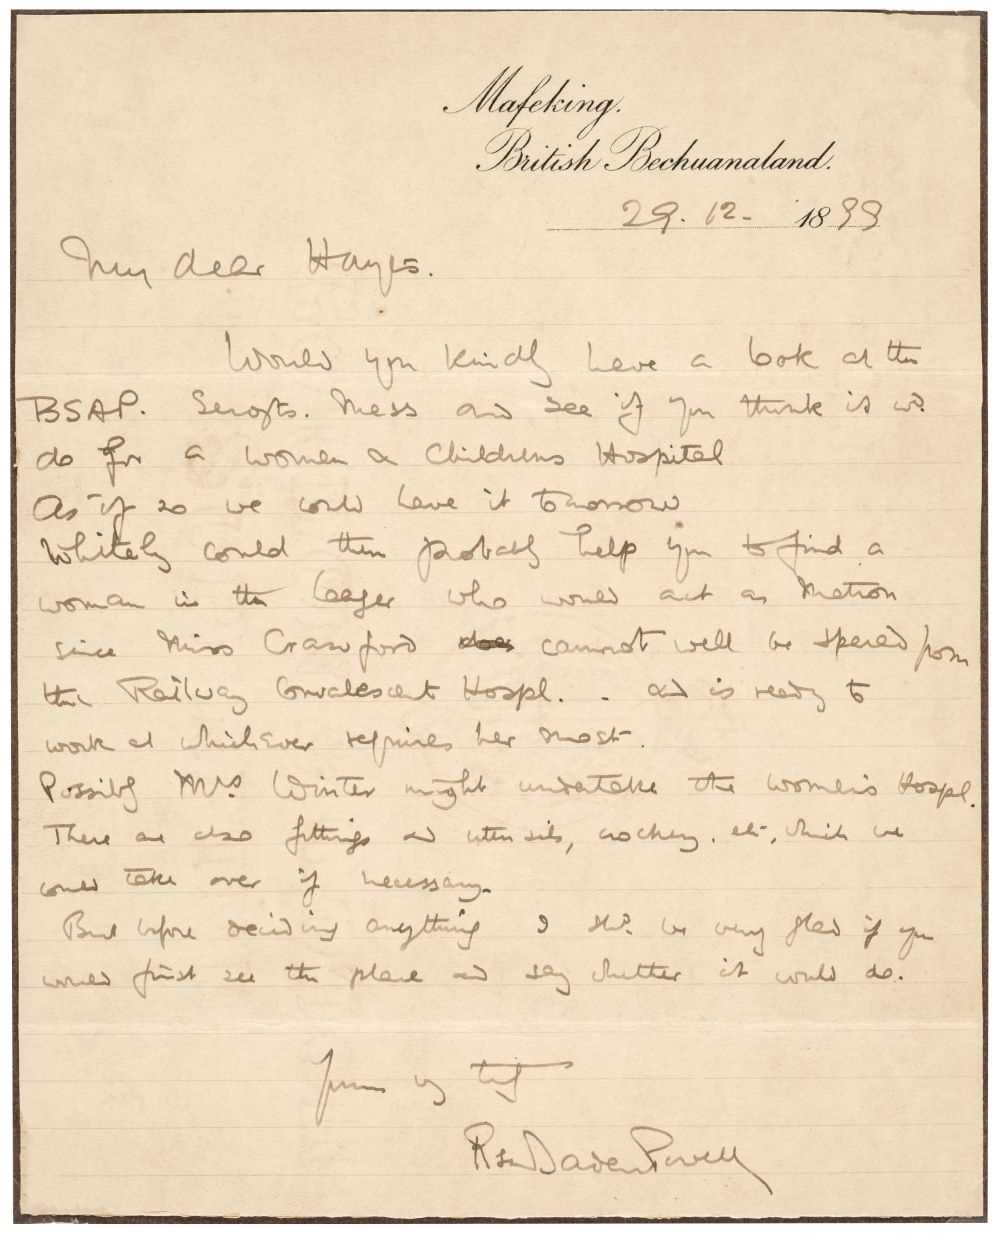 Mafeking.
British Bechuanaland.
29. 12. 1899
My dear Hayes.
Would you kindly have a look at the
BSAP. Sergts. Mess and see if you think it wd.
do for a women & childrens Hospital
As if so we could have it tomorrow
Whitely could then probably help you to find a
woman in the laager who would act as Matron
since Miss Crawford does cannot well be spared from
the Railway Convalescent Hospl. - and is ready to
work at whichever requires her most.
Possibly Mrs Winter might undertake the women's Hospl.
There are also fittings and utensils, crockery. etc, which we
could take over if necessary.
But before deciding anything I shd. be very glad if you
would first see the place and say whether it would do.
Yours vy try
RSS Baden Powell